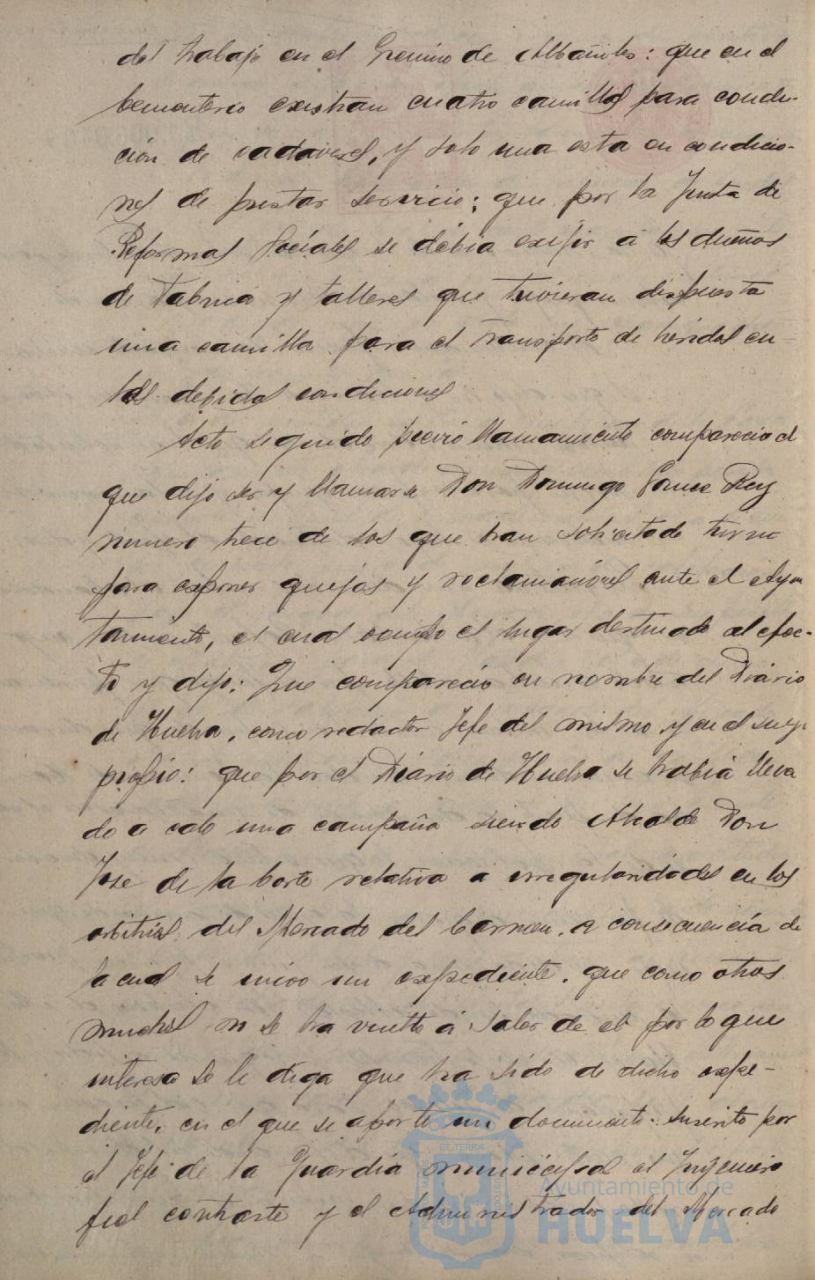 del trabajo en el Gremio de Albañiles: que en el
Cementerio existian cuatro camillas para condu-
ción de cadaveres, y solo una esta en condicio-
nes de prestar servicio; que por la Junta de
Reformas Sociales se debia exijir á los dueños
de Fabrica y talleres que tuvieran dispuesta
una camilla para el transporte de heridos en
las debidas condiciones
Acto seguido previo llamamiento comparecio el
que dijo ser y llamarse Don Domingo Rey
numero trece de los que han solicitado turno
para exponer quejas y reclamaciónes ante el Ayun
tamiento, el cual ocupo el lugar destinado al efec-
to y dijo: Que comparecio en nombre del Diário
de Huelva, como redactor Jefe del mismo, y en el suyo
propio: que por el Diário de Huelva se habia lleva
do a cabo una campaña siendo Alcalde Don
Jose de la Corte relativa a irregularidades en los
arbitrios del Mercado del Carmen, a consecuencía de
la cual se inicio un expediente, que como otros
muchos no se ha vuelto á saber de el por lo que
interesa se le diga que ha sido de dicho expe-
diente, en el que se aporto un documento suscrito por
el Jefe de la Guardia municipal el Ingeniero
fiel contraste y el Administrador del Mercado
Ayuntamiento de
HUELVA